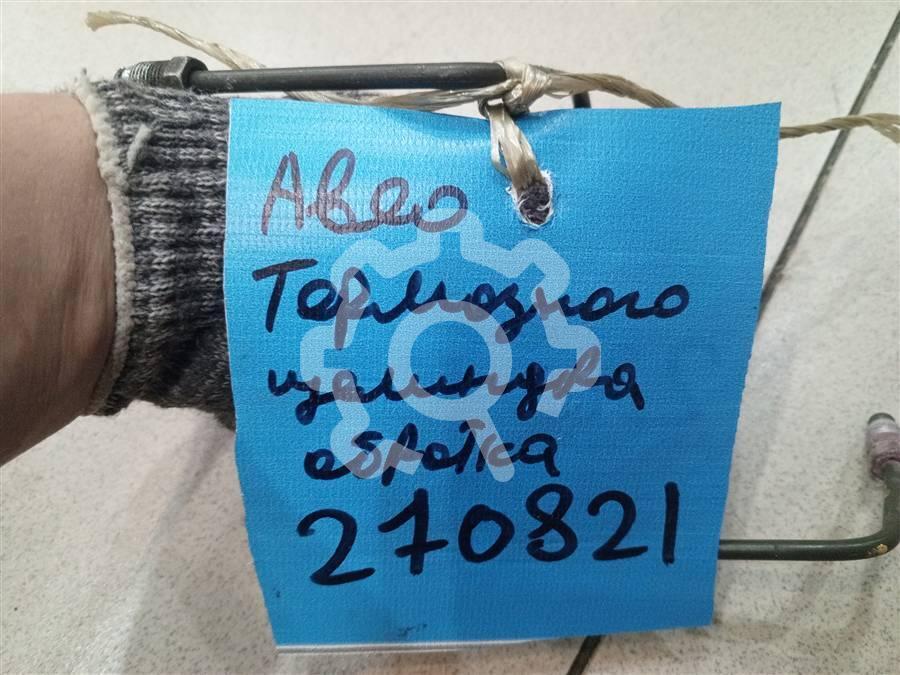 Авео
Тормозного
цилиндра
обратка
270821